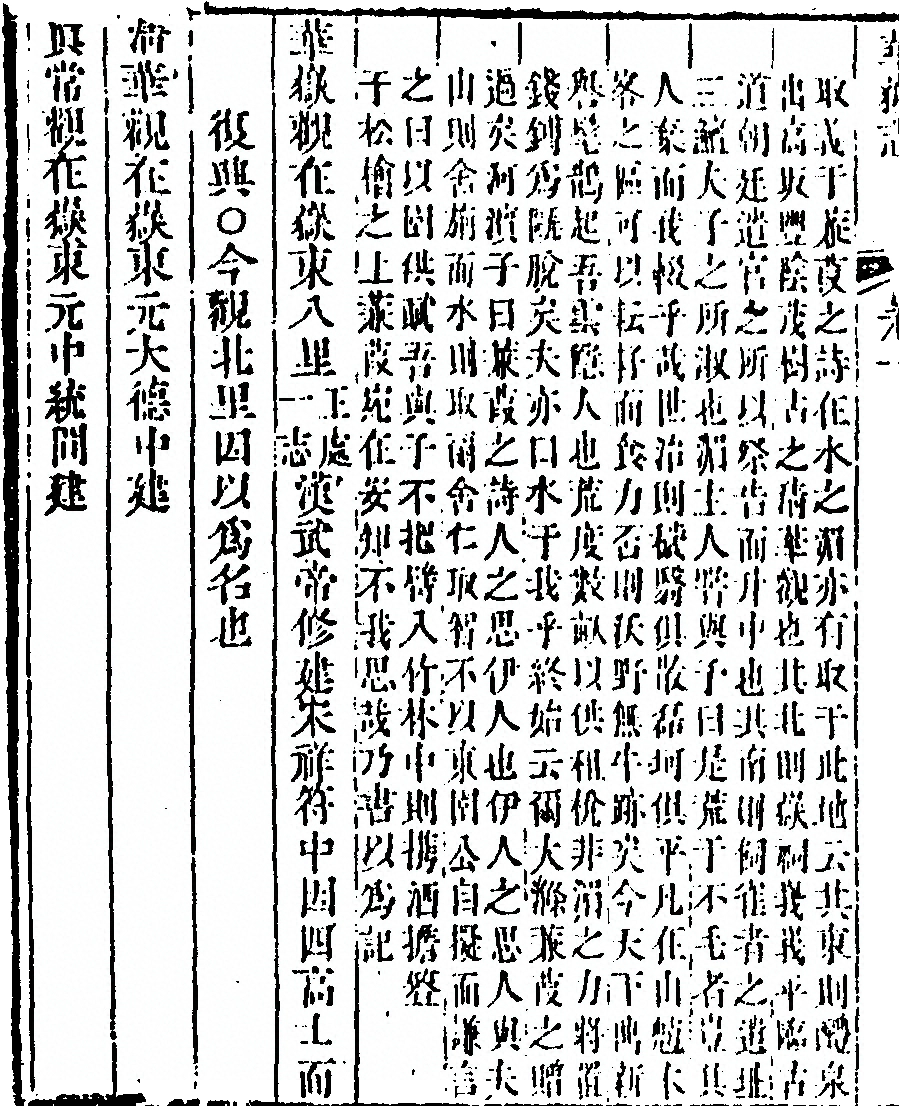 取義于蒹葭之詩在水之湄亦有取于此地云其東則醴泉
出焉坂豐陰茂樹古之清華觀也其北則嶽祠峩峩平臨古
道朝廷遣官之所以祭告而升中也其南則伺雀者之遊
三大子之所淑也湄主人嘗與予曰是荒于不毛者豈其
人棄而我掇乎哉世治則磈礧俱散磊坷俱平凡在山
客之區可以耘耔而食力否則沃野無牛跡矣今天下新
起吾集隱人也荒度數畝以供租稅非湄之力將置
錢鎛爲脫矣夫亦曰水于我乎終始云爾大滌蒹葭之贈
過矣河濱子曰蒹葭之詩人之思伊人也伊人之思人與夫
山則舍旃而水則取爾舍仁取智不以東園公自擬而謙言
之曰以園供賦吾與子不把臂入竹林中則攜酒擔簦
于松檜之上蒹葭宛在安知不我思哉乃書以爲記
華嶽觀在嶽東八里王處一志漢武帝修建宋祥符中因四高士而
復興〇今觀北里因以爲名也
清華觀在嶽東元大德中建
眞常觀在嶽東元中統間建